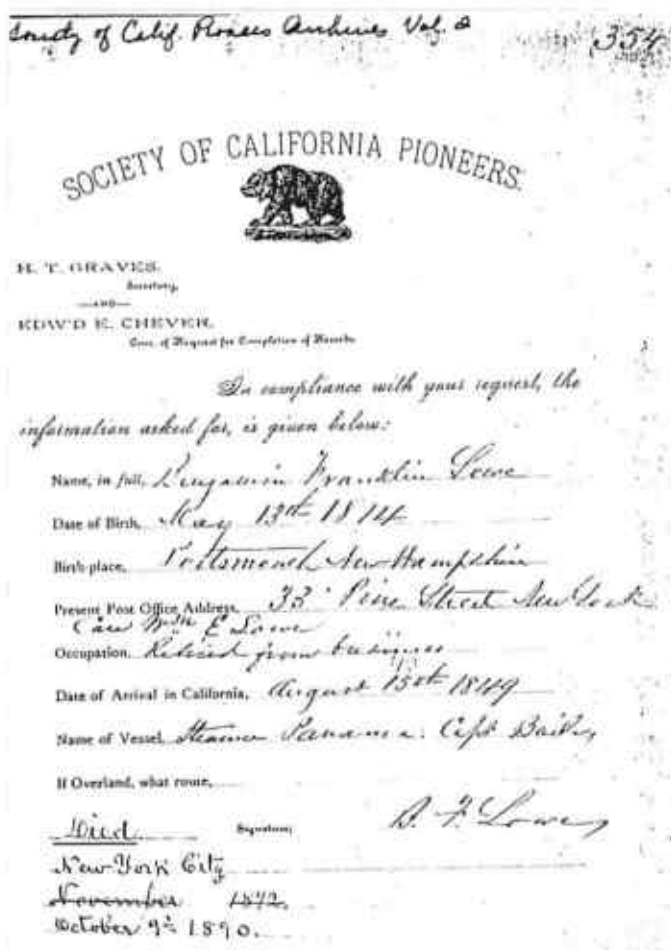 Society of Calif. Pioneers Archives Vol. 2 354
SOCIETY OF CALIFORNIA PIONEERS.
H. T. GRAVES,
Secretary,
—AND—
EDW'D E. CHEVER,
Com. of Request for Completion of Records
In compliance with your request, the
information asked for, is given below:
Name, in full, Benjamin Franklin Lowe
Date of Birth, May 13th 1814
Birth-place, Portsmouth New Hampshire
Present Post Office Address, 33 Pine Street New York
Care Wm E Lowe
Occupation, Retired from business
Date of Arrival in California, August 18th 1849
Name of Vessel, Steamer Panama. Capt
If Overland, what route,
Died Signature, B. F. Lowe
New York City
November 1872.
October 9th 1890.